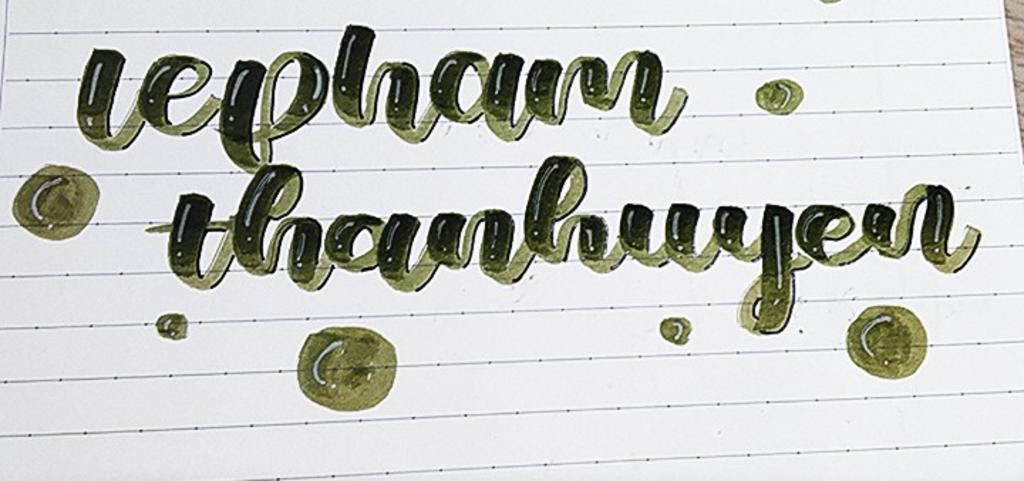 lepham
thanhuyen